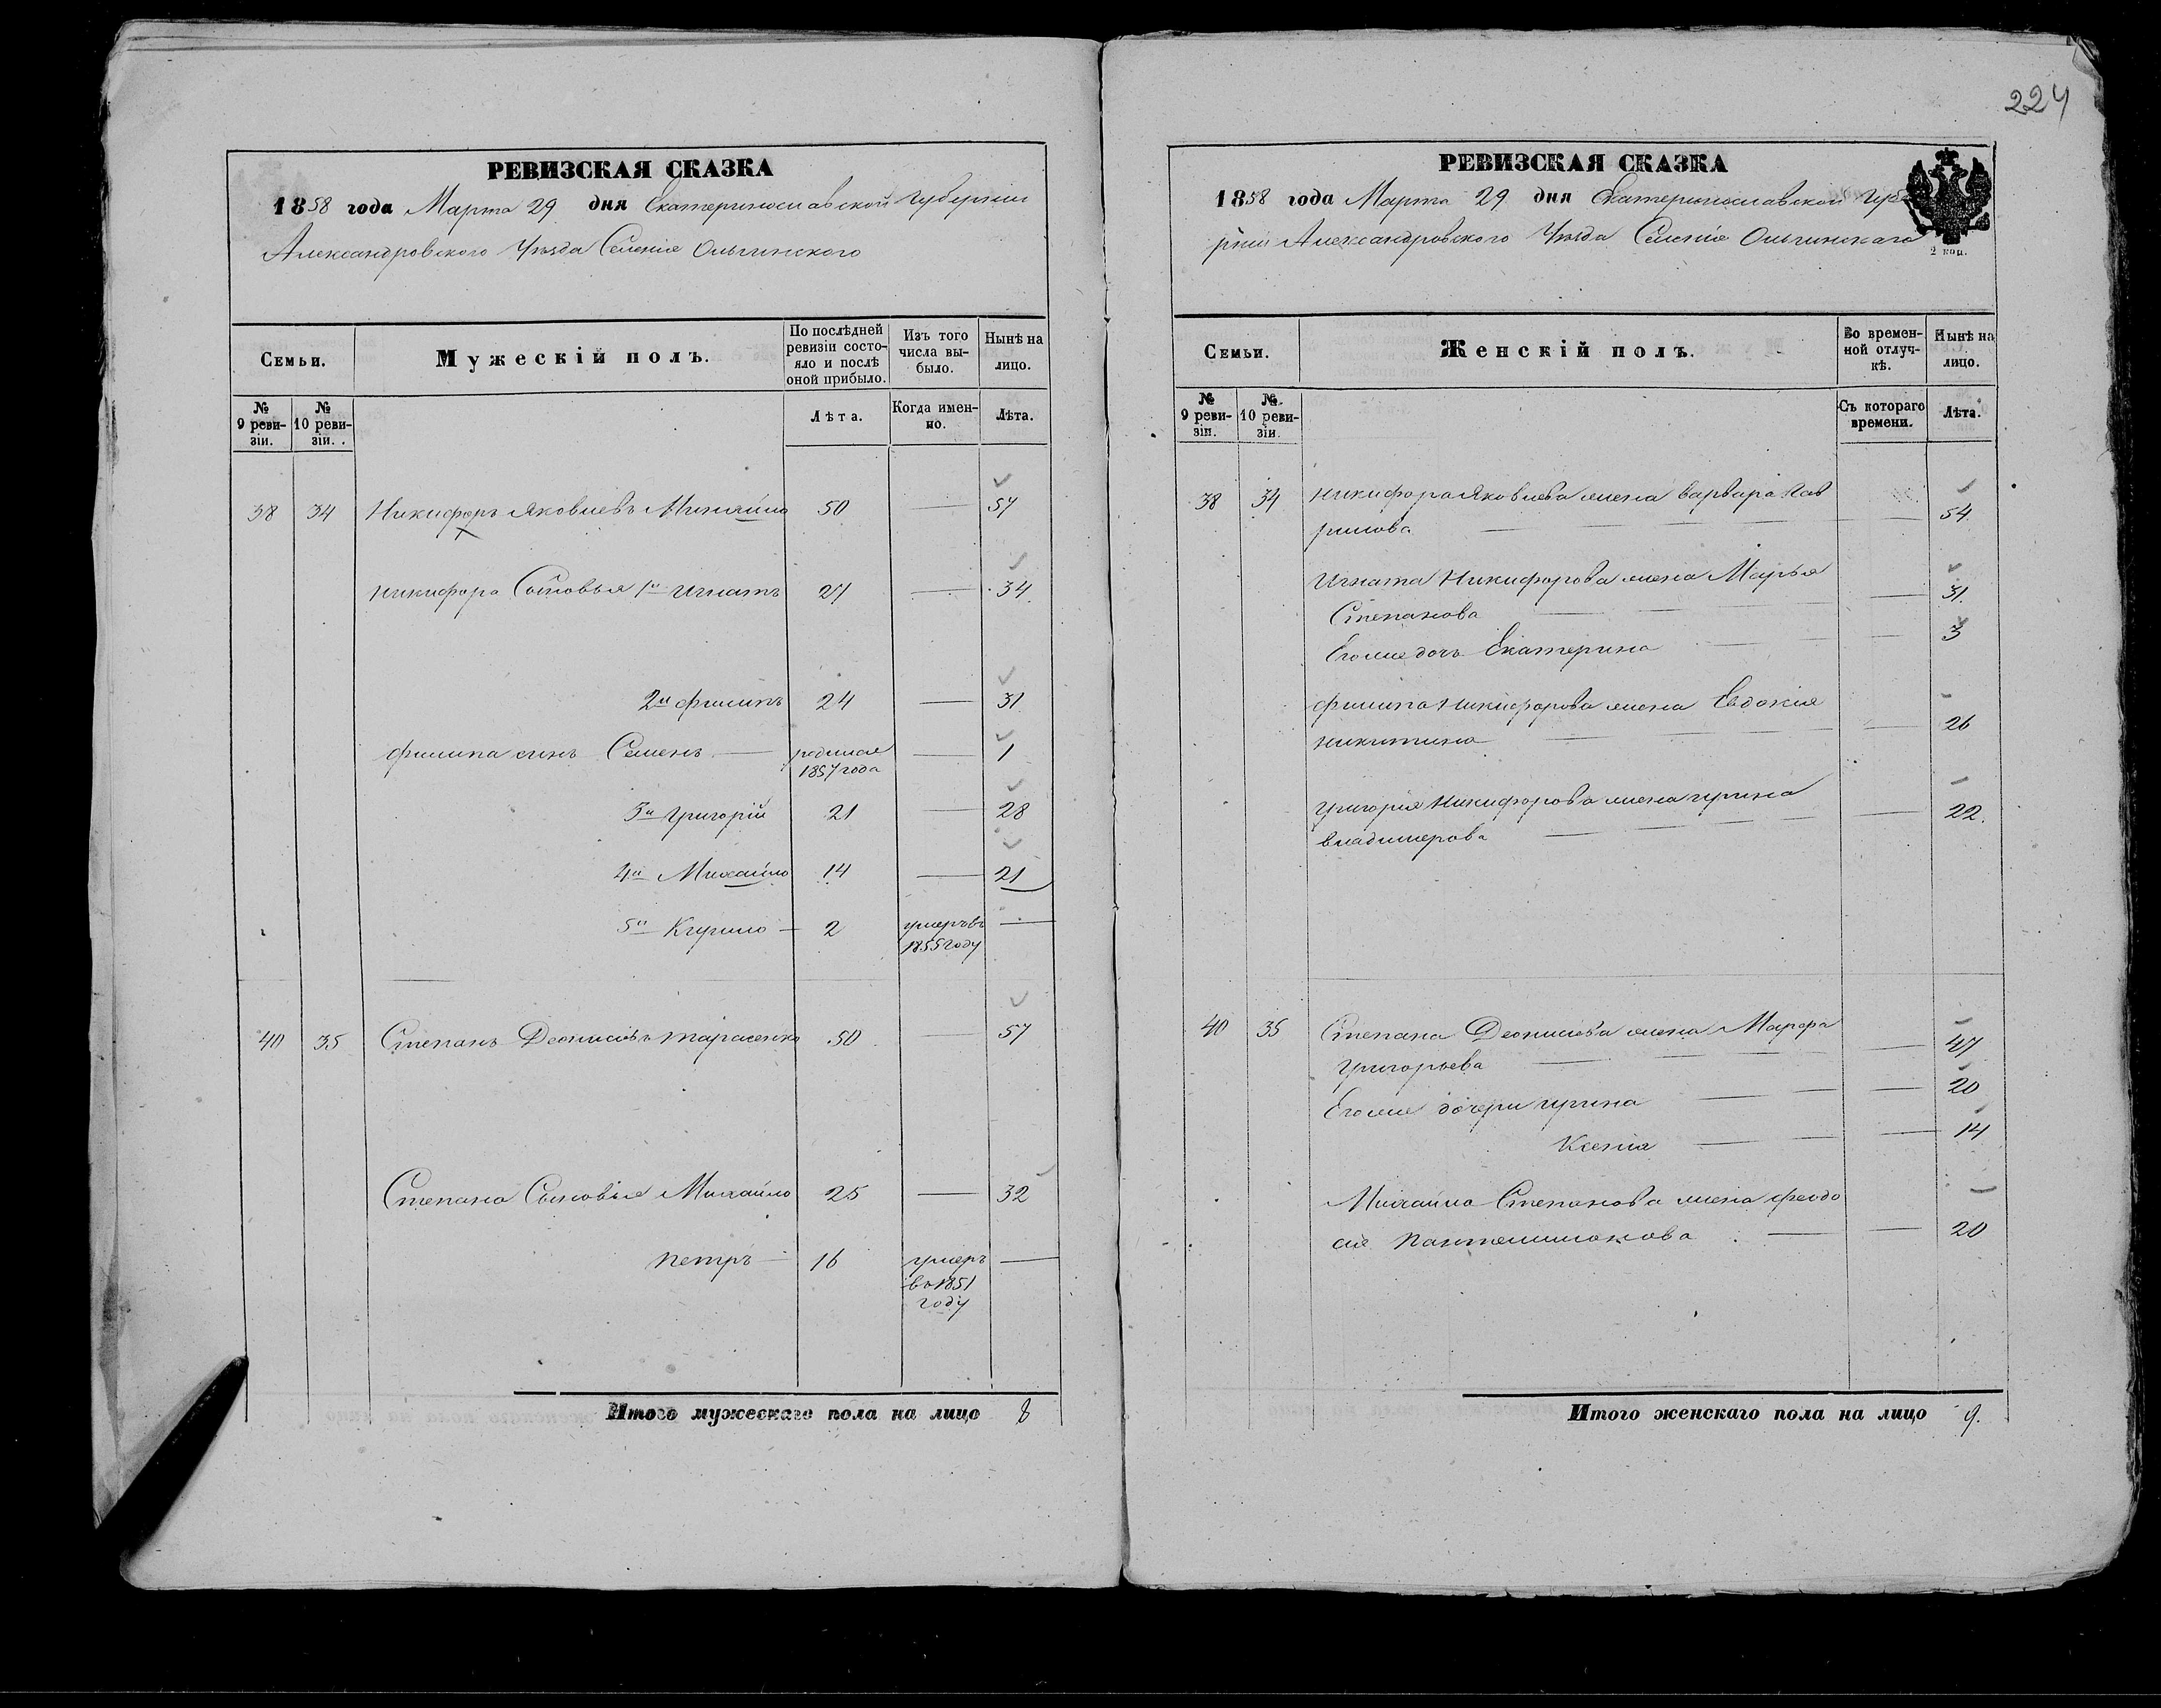 224
РЕВИЗСКАЯ СКАЗКА
1858 года Марта 29 дня Екатеринославской Губернии
Александровского Уѣзда Селенія Ольгинского
Семьи.
Мужескій полъ.
По послѣдней ревизіи состояло и послѣ оной прибыло.
Изъ того числа выбыло.
Нынѣ на лицо.
№ 9 ревизіи.
№ 10 ревизіи.
Лѣта.
Когда именно.
Лѣта.
38 34 Никифоръ Яковлевъ 50 — 57
Никифора Сыновья 1й Игнатъ 27 — 34
2й Филипъ 24 — 31
Филипа сынъ Семенъ — родился 1857 года — 1
3й Григорій 21 — 28
4й Михайло 14 — 21
5й Кирило — 2 умеръ въ 1855 году —
40 35 Степанъ Деонисовъ Тарасенко 50 — 57
Степана Сыновья Михайло 25 — 32
Петръ — 16 умеръ
въ 1851
году
Итого мужескаго пола на лицо 8
РЕВИЗСКАЯ СКАЗКА
1858 года Марта 29 дня Екатеринославской Губе
рніи Александровского Уѣзда Селенія Ольгинскаго
2 коп.
Семьи.
Женскій полъ.
Во временной отлучкѣ.
Нынѣ на лицо.
№ 9 ревизіи.
№ 10 ревизіи.
Съ котораго времени.
Лѣта.
38 34 Никифора Яковлева жена Варвара Гав
рилова — 54
Игната Никифорова жена Марья
Степанова — 31
Его же дочь Екатерина — 3
Филипа Никифорова жена Евдокія
Никитина — 26
Григорія Никифорова жена Ирина
Владимерова — 22
40 35 Степана Деонисова жена Марфа
Григорьева — 47
Его же дочери Ирина — 20
Ксенія — 14
Михайла Степанова жена Феодо
сія Пантелимонова — 20
Итого женскаго пола на лицо 9.